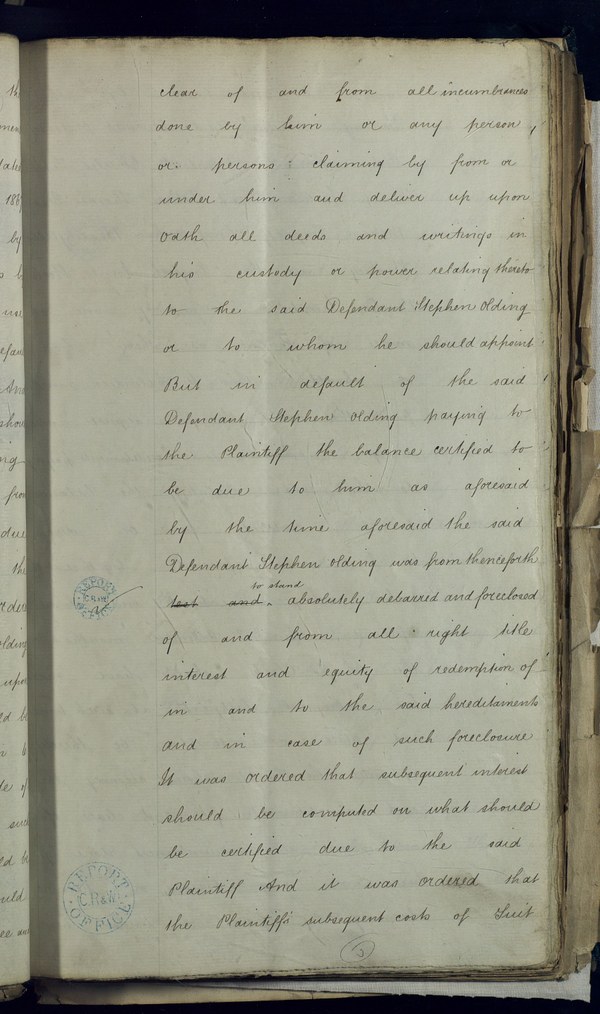 clear of and from all incumbrances
done by him or any person
or persons claiming by from or
under him and deliver up upon
Oath all deeds and writings in
his custody or power relating thereto
to the said Defendant Stephen Olding
or to whom he should appoint
But in default of the said
Defendant Stephen Olding paying to
the Plaintiff the balance certified to
be due to him as aforesaid
by the time aforesaid the said
Defendant Stephen Olding was from thenceforth
to stand
absolutely debarred and foreclosed
of and from all right title
interest and equity of redemption of
in and to the said hereditaments
and in case of such foreclosure
It was ordered that subsequent interest
should be computed on what should
be certified due to the said
Plaintiff And it was ordered that
the Plaintiffs subsequent costs of Suit
REPORT OFFICE